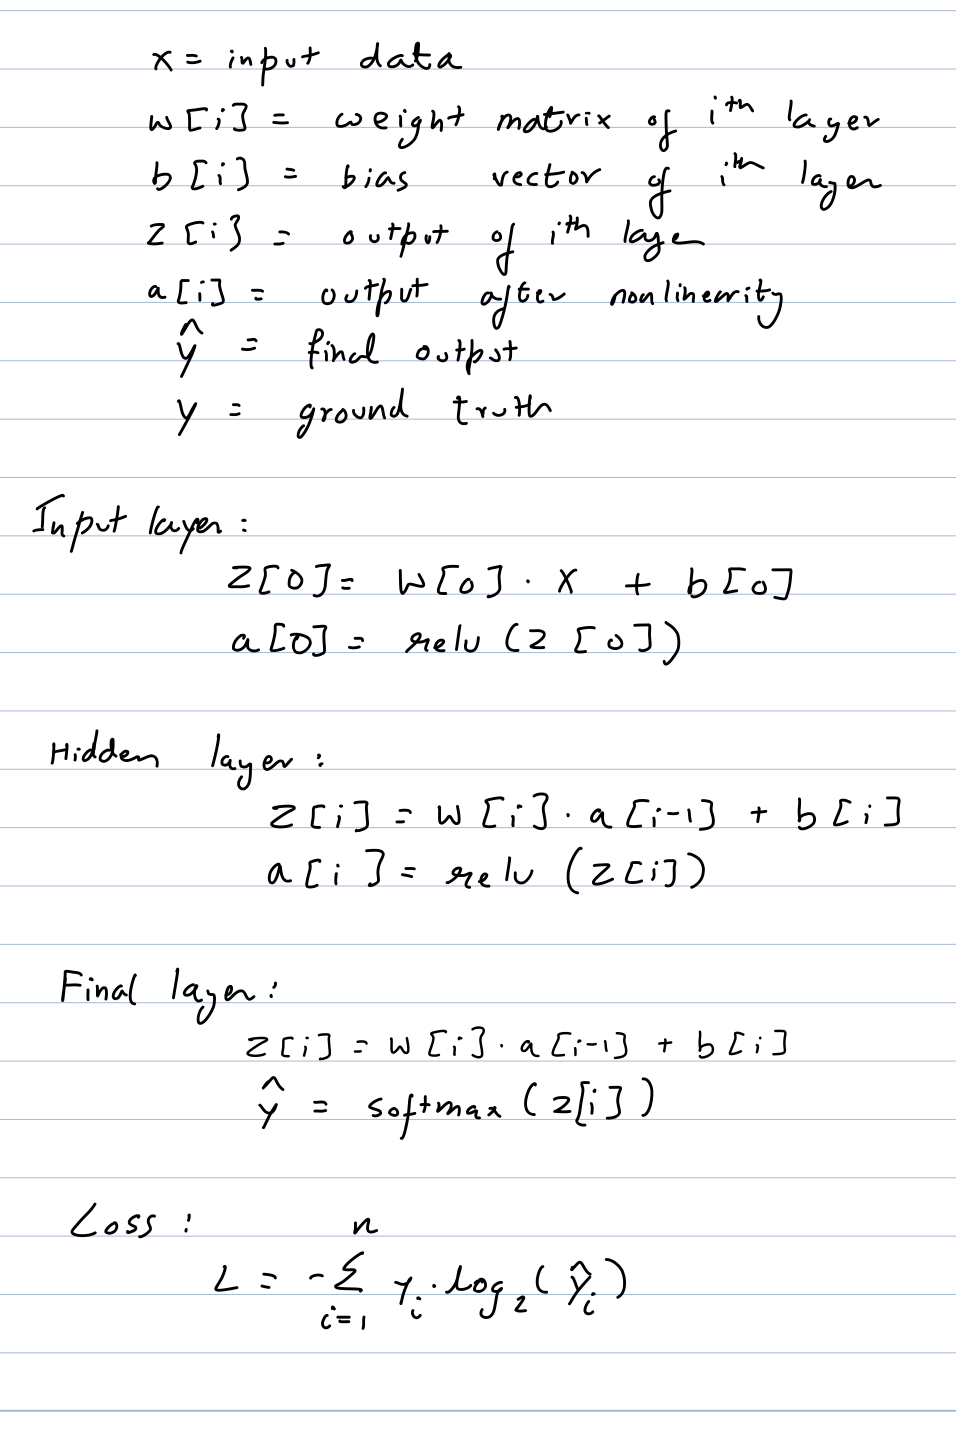 x = input data
w[i] = weight matrix of ith layer
b[i] = bias vector of ith layer
z[i] = output of ith layer
a[i] = output after nonlinearity
ŷ = final output
y = ground truth
Input layer:
z[0] = w[0] . x + b[0]
a[0] = relu (z[0])
Hidden layer:
z[i] = w[i] . a[i-1] + b[i]
a[i] = relu (z[i])
Final layer:
z[i] = w[i] . a[i-1] + b[i]
ŷ = softmax (z[i])
Loss:
L = -Σ_{i=1}^{n} y_i . log_2 (ŷ_i)